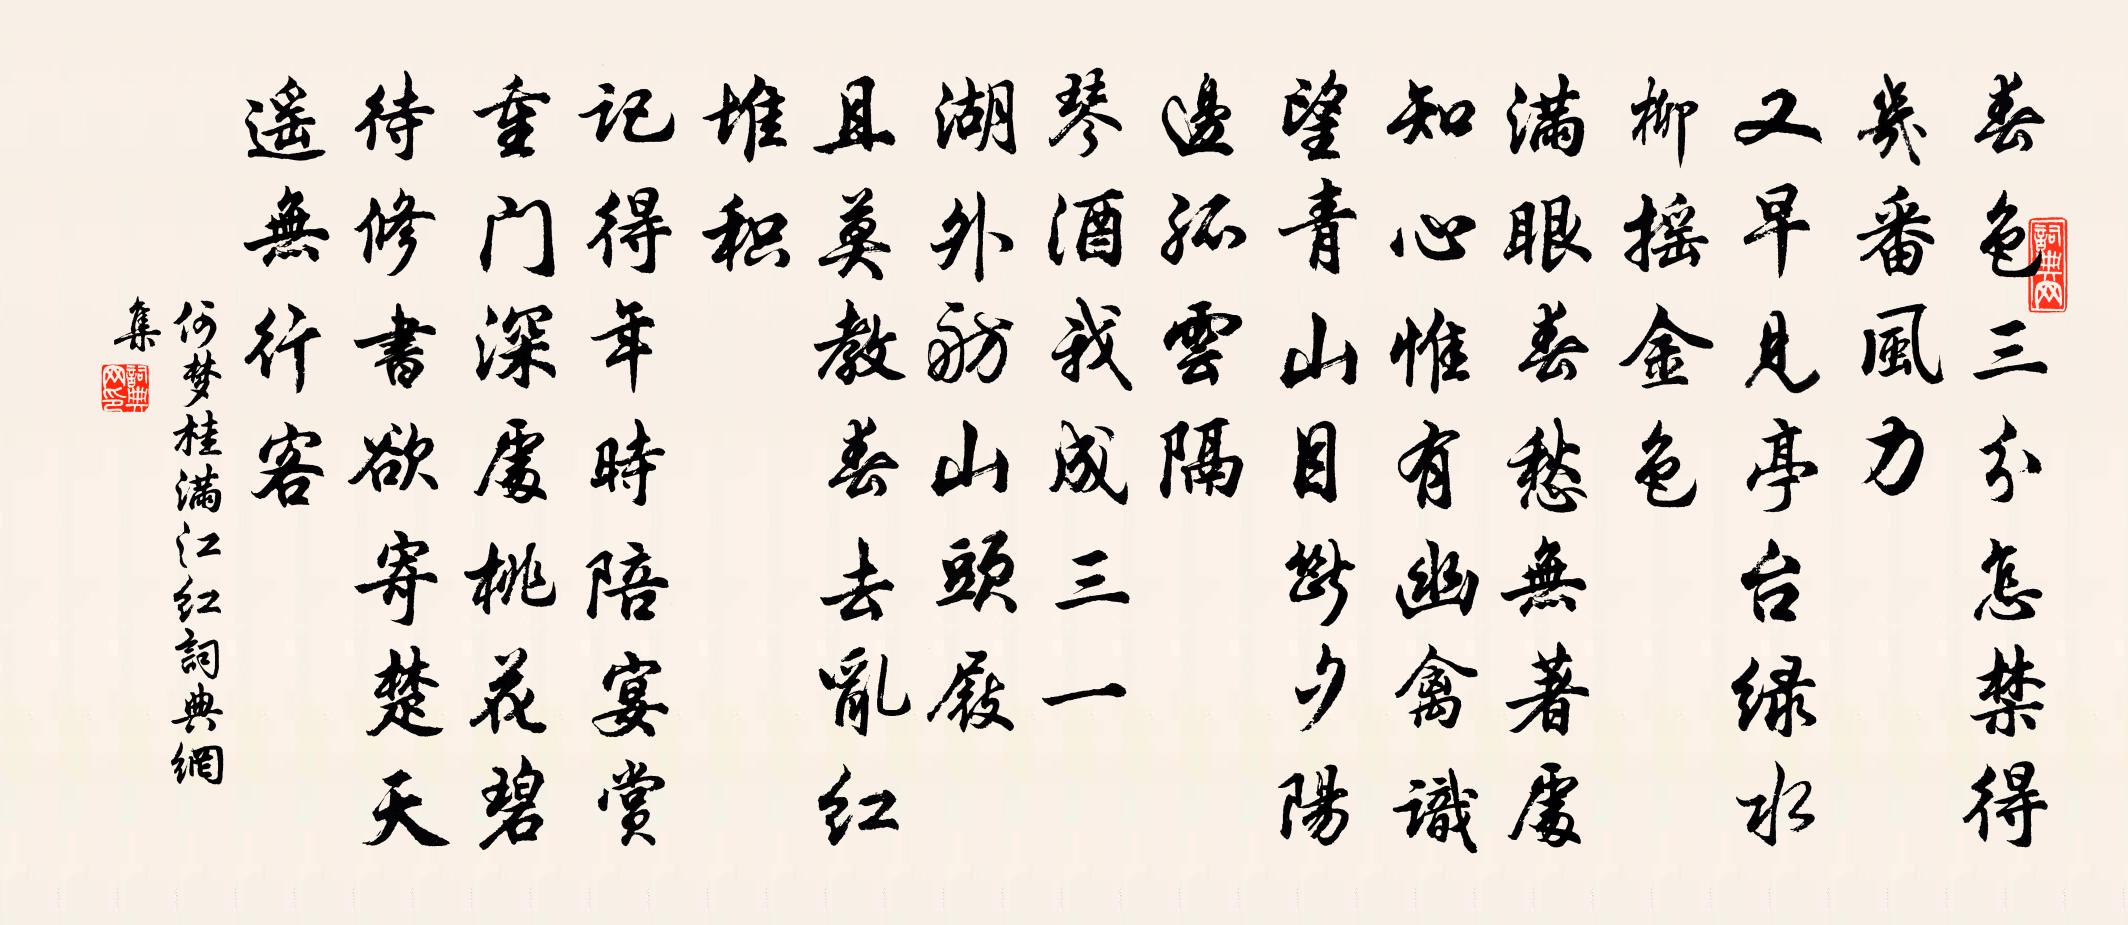 春色三分怎禁得
幾番風力
又早見亭台绿水
柳摇金色
满眼春愁無著處
知心惟有幽禽識
望青山目斷夕陽
邊孤雲隔
琴酒我成三一
湖外舫山頭屐
且莫教春去亂红
堆积
记得年時陪宴赏
重门深處桃花碧
待修書欲寄楚天
遥無行客
何梦桂满江红詞典網
集
詞典网
詞典网印